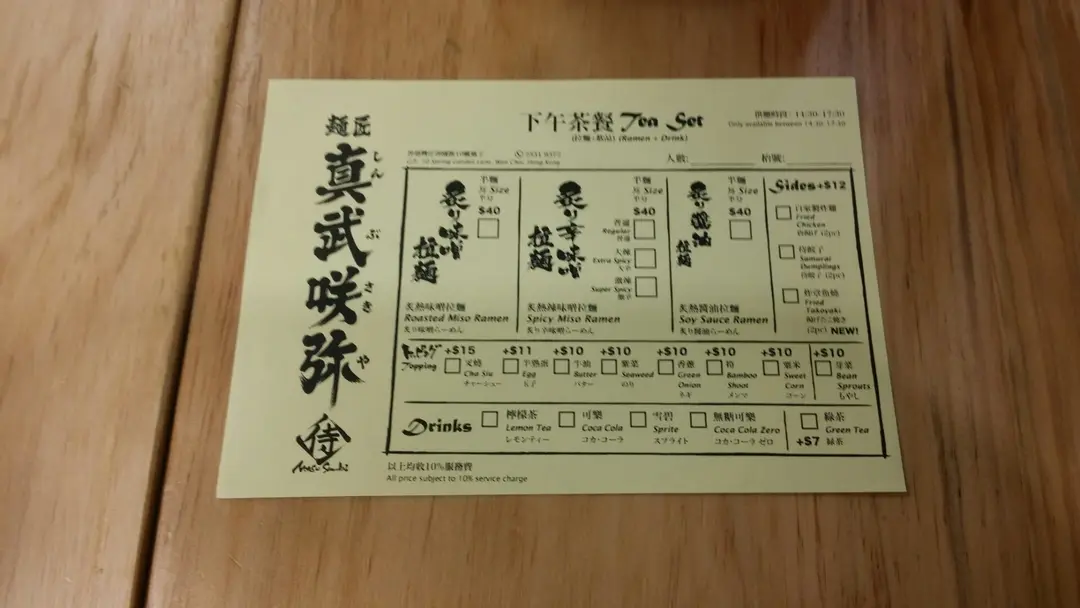 麺匠
真武咲弥
しん ぶ さき や
侍
下午茶餐 Tea Set
(拉麵+飲品) (Ramen + Drink)
供應時間：14:30-17:30
Only available between 14:30-17:30
人數:
枱號:
炙り味噌
拉麺
半麵
Size
$40
炙熱味噌拉麵
Roasted Miso Ramen
炙り味噌らーめん
炙り辛味噌
拉麺
半麵
Size
$40
普通
Regular
普通
大辣
Extra Spicy
大辛
激辣
Super Spicy
激辛
炙熱辣味噌拉麵
Spicy Miso Ramen
炙り辛味噌らーめん
炙り醤油
拉麺
半麵
Size
$40
炙熱醬油拉麵
Soy Sauce Ramen
炙り醤油らーめん
Sides +$12
自家製炸雞
Fried
Chicken
(2pc)
侍餃子
Samurai
Dumplings
侍餃子 (2pc)
炸章魚燒
Fried
Takoyaki
揚げたこ焼き
(2pc) NEW!
トッピング
Topping
+$15
叉燒
Cha Siu
チャーシュー
+$11
半熟蛋
Egg
玉子
+$10
牛油
Butter
バター
+$10
紫菜
Seaweed
のり
+$10
香蔥
Green
Onion
ネギ
+$10
筍
Bamboo
Shoot
メンマ
+$10
粟米
Sweet
Corn
コーン
+$10
芽菜
Bean
Sprouts
もやし
Drinks
檸檬茶
Lemon Tea
レモンティー
可樂
Coca Cola
コカ·コーラ
雪碧
Sprite
スプライト
無糖可樂
Coca Cola Zero
コカ·コーラ ゼロ
綠茶
Green Tea
+$7 緑茶
以上均收10%服務費
All price subject to 10% service charge